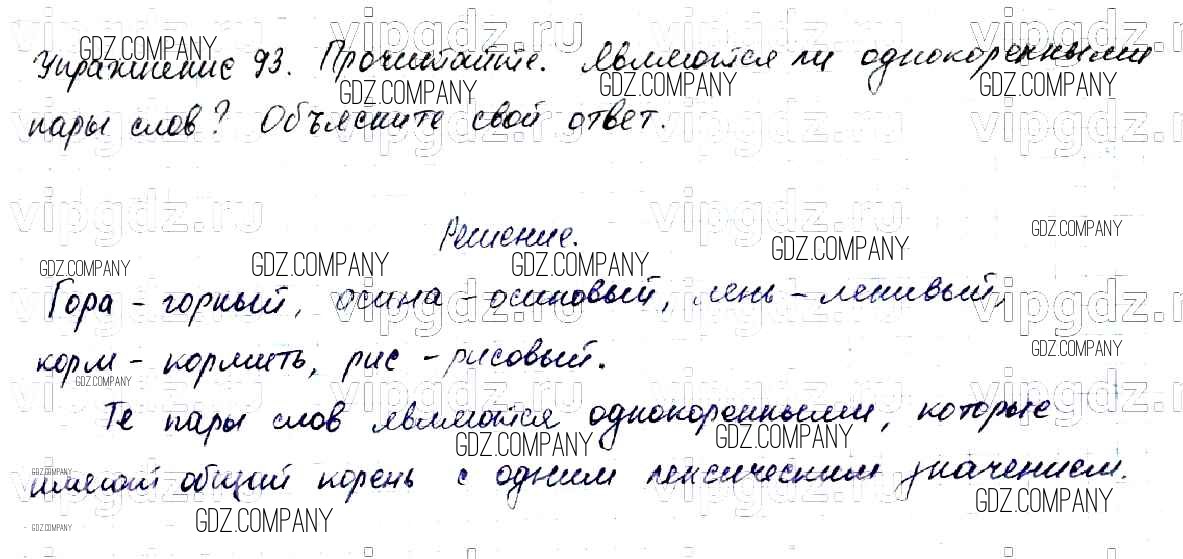 Упражнение 93. Прочитайте. Являются ли однокоренными
пары слов? Объясните свой ответ.
Решение.
Гора - горный, осина - осиновый, лень - ленивый,
корм - кормить, рис - рисовый.
Те пары слов являются однокоренными, которые
имеют общий корень с одним лексическим значением.
GDZ.COMPANY
vipgdz.ru